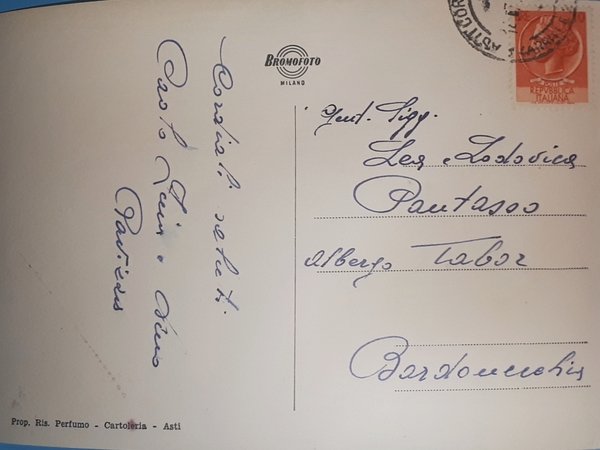 Cordiali saluti
Carlo
BROMOFOTO
MILANO
ASTI
POSTE
REPUBBLICA
ITALIANA
Gent. Sigg.
Lea e Lodovica
Pantasso
Albergo Tabor
Bardonecchia
Prop. Ris. Perfumo - Cartoleria - Asti